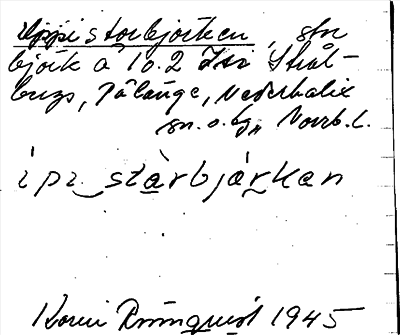 Uppi storbjörken, stor
björk å 10.2 Isr Strål-
bergs, Pålänge, Nederkalix
sn. o. bg., Norrb. l.
ìpɩ‿stàrbjár̲kan
Karin Rönnquist 1945